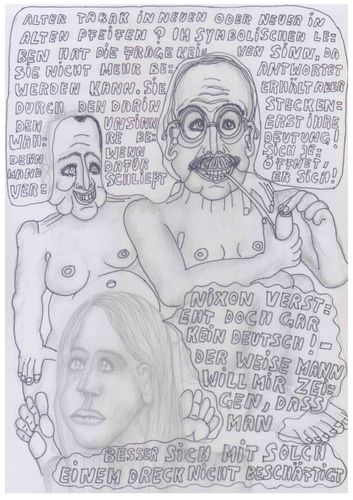 ALTER TABAK IN NEUEN ODER NEUER IN
ALTEN PFEIFEN? IM SYMBOLISCHEN LE-
BEN HAT DIE FRAGE KEINEN SINN, DA
SIE NICHT MEHR BE- ANTWORTET
WERDEN KANN. SIE ERHÄLT ABER
DURCH DEN DARIN STECKEN-
DEN UNSINN ERST IHRE
WAH- RE BE- DEUTUNG!
DENN WENN SICH JE-
MAND DAFÜR ÖFFNET,
VER- SCHLIEßT ER SICH!
NIXON VERST-
EHT DOCH GAR
KEIN DEUTSCH! -
DER WEISE MANN
WILL MIR ZEI-
GEN, DASS
MAN
BESSER SICH MIT SOLCH
EINEM DRECK NICHT BESCHÄFTIGT